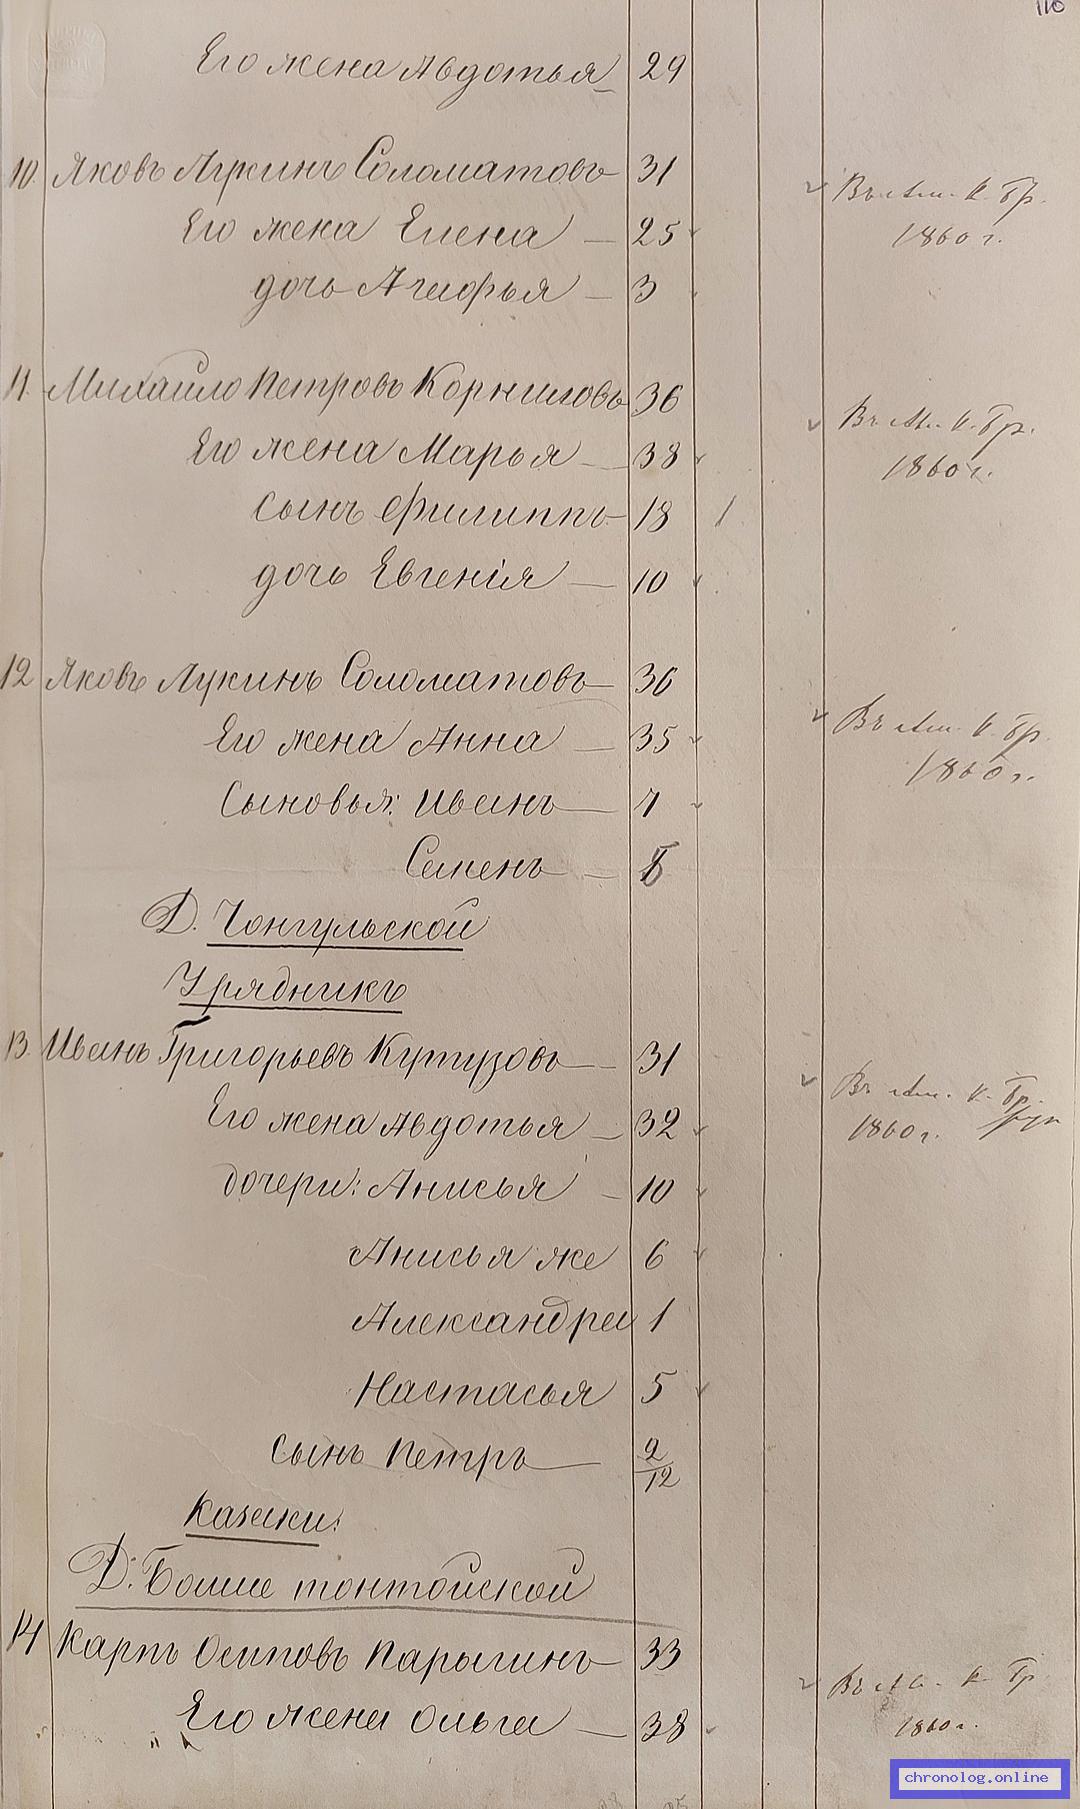 110
Его жена Авдотья 29
10. Яковъ Лукинъ Соломатовъ 31
Въ Ам. к. бр.
1860 г.
Его жена Елена — 25
дочь Агафья — 3
11. Михайло Петровъ Корниловъ 36
Въ Ам. к. бр.
1860 г.
Его жена Марья — 38
сынъ Филиппъ 18 1
дочь Евгенія — 10
12 Яковъ Лукинъ Соломатовъ 36
Въ Ам. к. бр.
1860 г.
Его жена Анна — 35
Сыновья: Иванъ — 7
Семенъ —
Д. Чонгульской
Урядникъ
13. Иванъ Григорьевъ Кутузовъ — 31
Въ Ам. к. бр.
1860 г.
Его жена Авдотья — 32
дочери: Анисья — 10
Анисья же 6
Александра 1
Настасья 5
сынъ Петръ — 2/12
Казаки:
Д. Больше тонтойской
14 Карпъ Осиповъ Парыгинъ — 33
Въ Ам. к. бр
1860 г.
Его жена Ольга — 38
chronolog.online